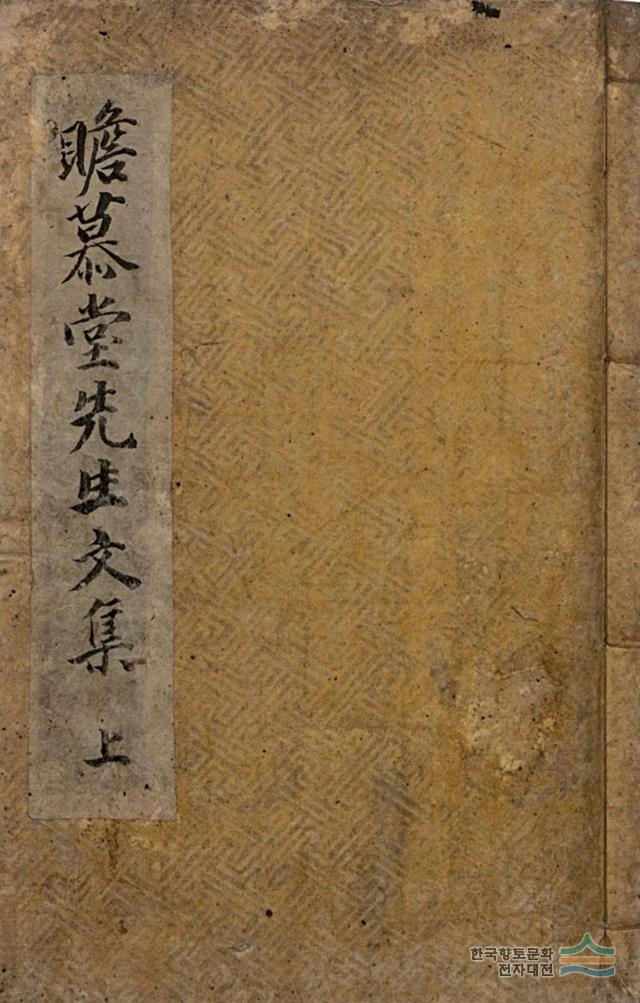 瞻慕堂先生文集 上
한국향토문화
전자대전